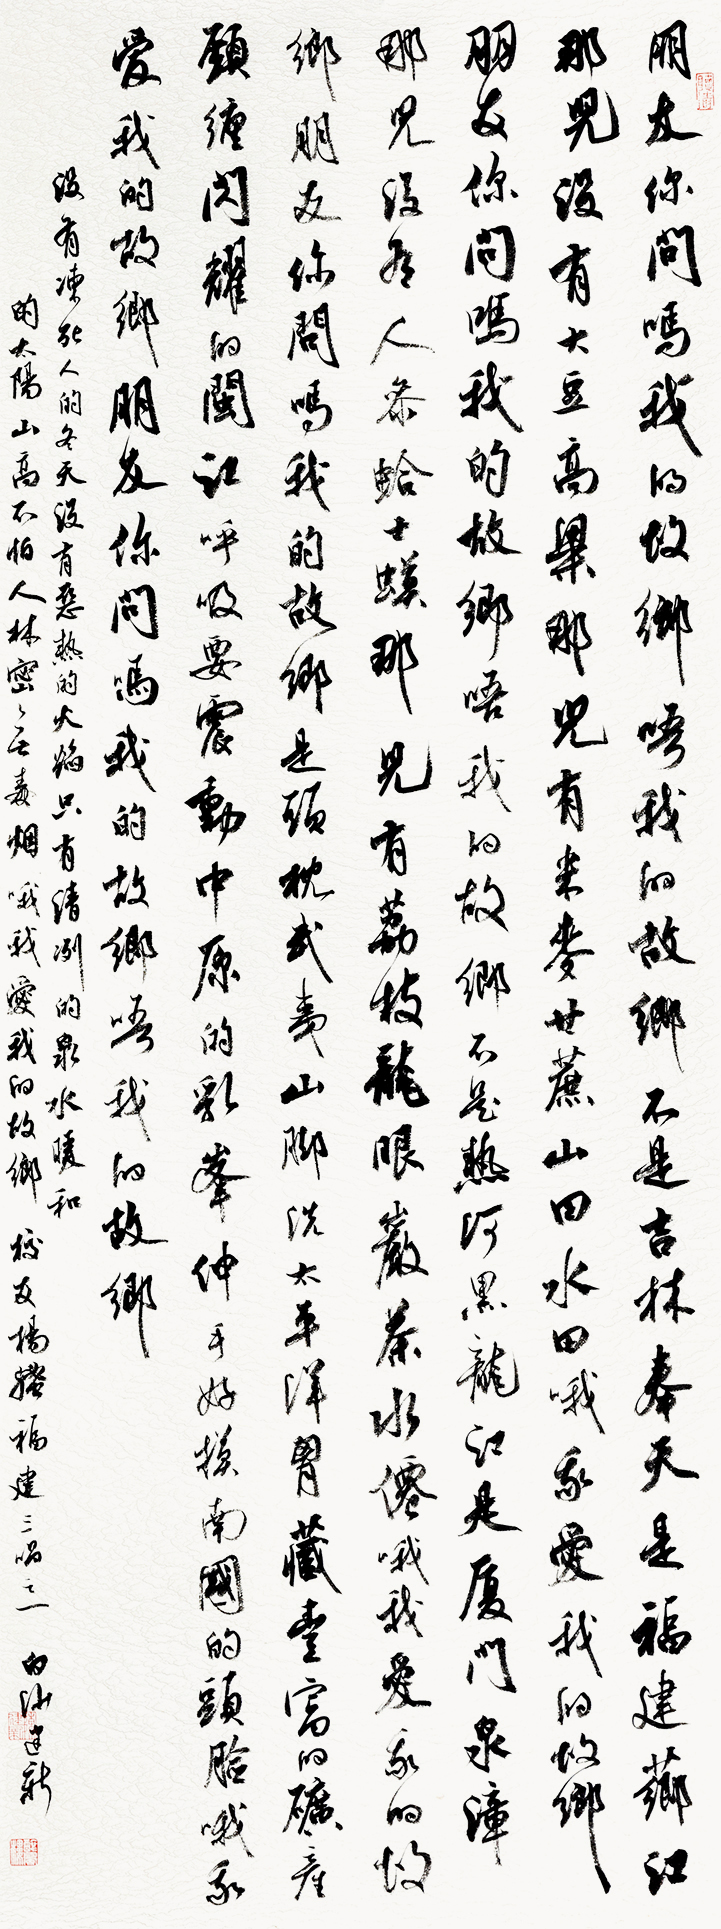 朋友你問嗎我的故鄉唔我的故鄉不是吉林奉天是福建薌江
那兒没有大豆高粱那兒有米麥甘蔗山田水田哦我愛我的故鄉
朋友你問嗎我的故鄉唔我的故鄉不是熱河黑龍江是厦門泉漳
那兒没有人参蛤士蟆那兒有荔枝龍眼巖茶水僊哦我愛我的故
鄉朋友你問嗎我的故鄉是頭枕武夷山脚洗太平洋胃藏豊富的礦産
頸纏閃耀的閩江呼吸要震動中原的乳峯伸手好摸南國的頭臉哦我
愛我的故鄉朋友你問嗎我的故鄉唔我的故鄉
没有凍死人的冬天没有惡熱的火焰只有清冽的泉水暖和
的太陽山高不怕人林密密無毒烟哦我愛我的故鄉 校友楊騷福建三唱之一 建新